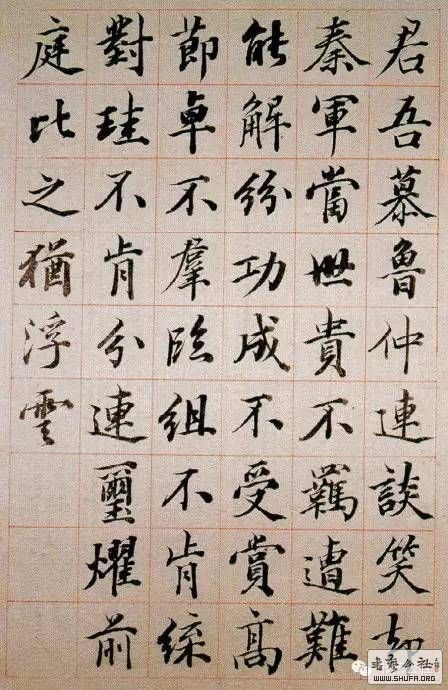 君吾慕魯仲連談笑却
秦軍當世貴不羈遭難
能解紛功成不受賞高
節卓不羣臨組不肯緤
對珪不肯分連璽燿前
庭比之猶浮雲
书艺公社
WWW.SHUFA.ORG